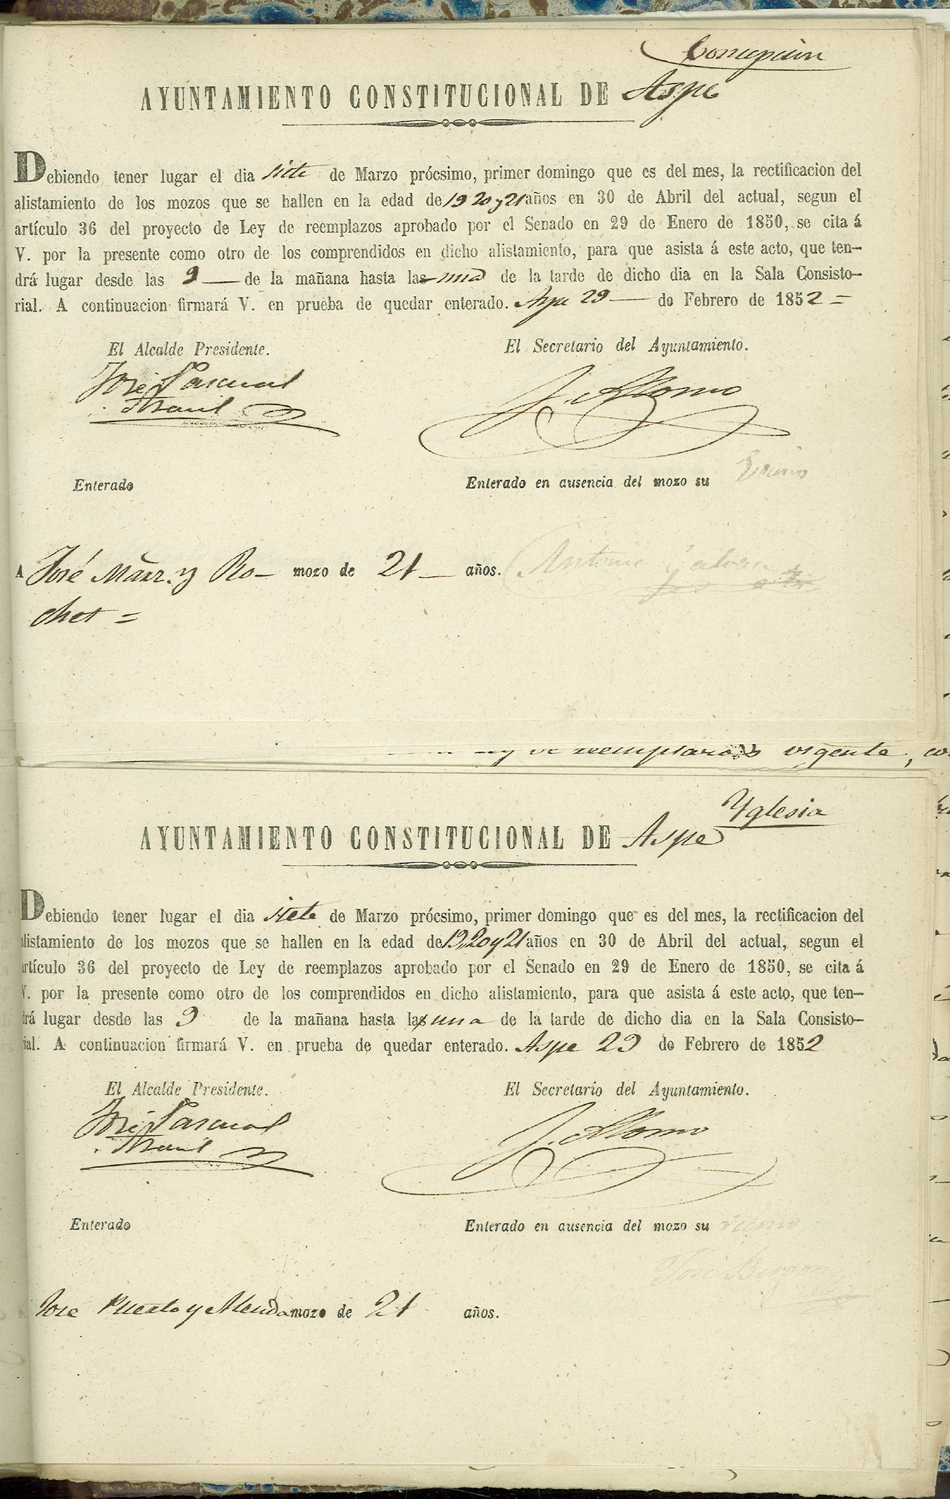 Concepcion
AYUNTAMIENTO CONSTITUCIONAL DE Aspe
Debiendo tener lugar el dia siete de Marzo prócsimo, primer domingo que es del mes, la rectificacion del
alistamiento de los mozos que se hallen en la edad de 19 20 y 21 años en 30 de Abril del actual, segun el
artículo 36 del proyecto de Ley de reemplazos aprobado por el Senado en 29 de Enero de 1850, se cita á
V. por la presente como otro de los comprendidos en dicho alistamiento, para que asista á este acto, que ten-
drá lugar desde las 9 — de la mañana hasta las una de la tarde de dicho dia en la Sala Consisto-
rial. A continuacion firmará V. en prueba de quedar enterado. Aspe 29 — de Febrero de 1852 =
El Alcalde Presidente. El Secretario del Ayuntamiento.
José Pascual J. Alonso
Enterado Enterado en ausencia del mozo su
A José Mãrz. y Ro- mozo de 21 — años. Antonio
chet =
y de reemplazos vigente, co
Yglesia
AYUNTAMIENTO CONSTITUCIONAL DE Aspe
Debiendo tener lugar el dia siete de Marzo prócsimo, primer domingo que es del mes, la rectificacion del
alistamiento de los mozos que se hallen en la edad de 19 20 y 21 años en 30 de Abril del actual, segun el
artículo 36 del proyecto de Ley de reemplazos aprobado por el Senado en 29 de Enero de 1850, se cita á
V. por la presente como otro de los comprendidos en dicho alistamiento, para que asista á este acto, que ten-
drá lugar desde las 9 de la mañana hasta las una de la tarde de dicho dia en la Sala Consisto-
rial. A continuacion firmará V. en prueba de quedar enterado. Aspe 29 de Febrero de 1852
El Alcalde Presidente. El Secretario del Ayuntamiento.
José Pascual J. Alonso
Enterado Enterado en ausencia del mozo su
José Puerto y mozo de 21 años.